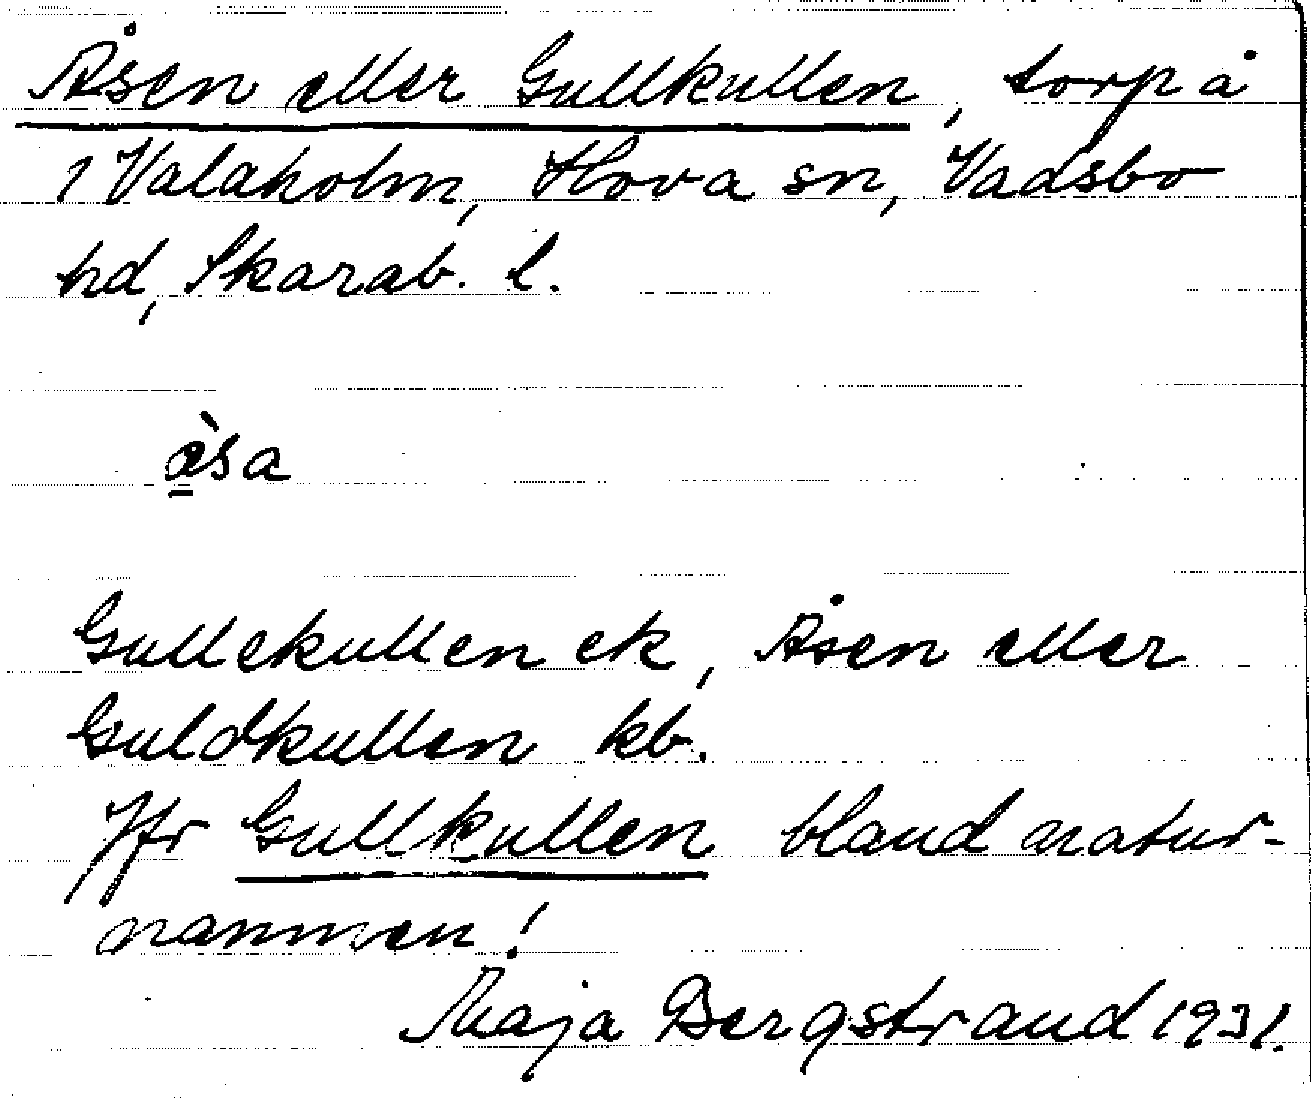 Åsen eller Gullkullen, torp å
1 Valaholm, Hova sn, Vadsbo
hd, Skarab. l.
åsa
Gullekullen ek, Åsen eller
Guldkullen kb.
Jfr Gullkullen bland natur-
namnen!
Maja Bergstrand 1931.